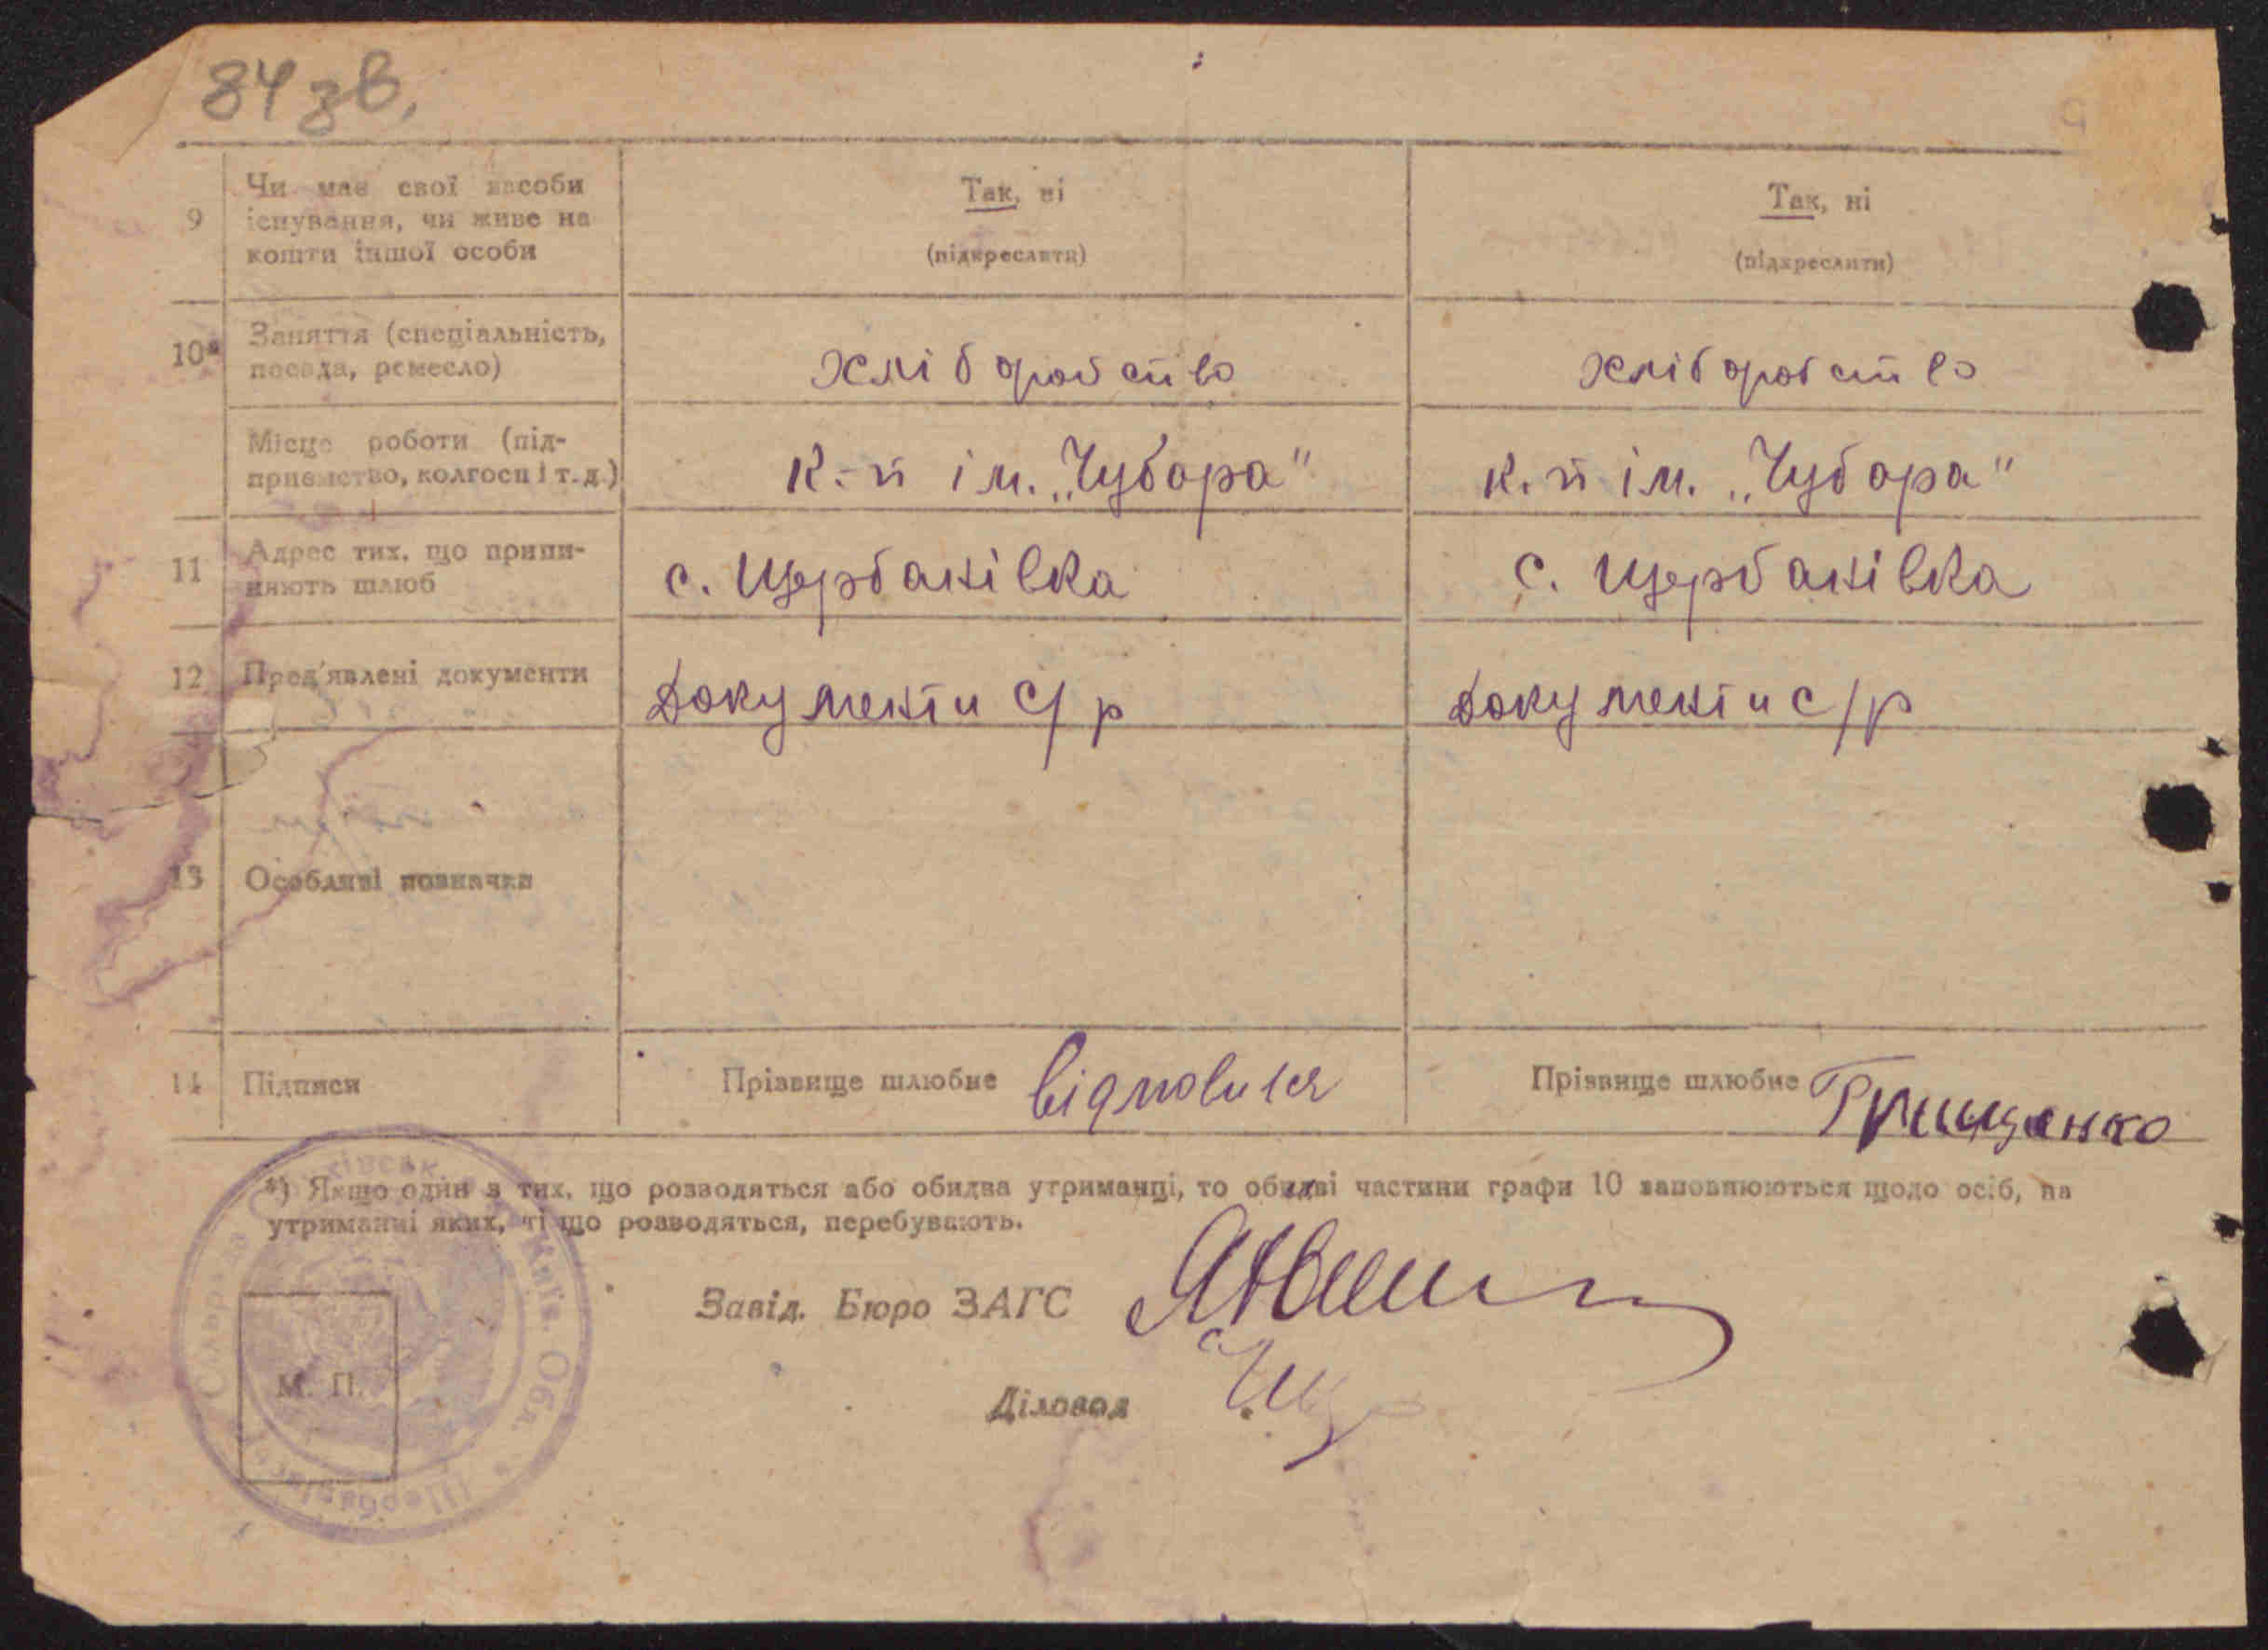 84 зв.
9 Чи має свої засоби Так, ні Так, ні
існування, чи живе на
кошти іншої особи (підкреслити) (підкреслити)
10* Заняття (спеціальність,
посада, ремесло) Хліборобство Хліборобство
Місце роботи (під-
приємство, колгосп і т. д.) к-п ім. „Чубаря" к.п ім. „Чубаря"
11 Адрес тих, що припи-
няють шлюб с. Щербанівка с. Щербанівка
12 Пред'явлені документи Документи с/р Документи с/р
13 Особливі позначки
14 Підписи Прізвище шлюбне відмовився Прізвище шлюбне Грищенко
*) Якщо один з тих, що розводяться або обидва утриманці, то обидві частини графи 10 заповнюються щодо осіб, на
утриманні яких, ті що розводяться, перебувають.
Завід. Бюро ЗАГС
Діловод
М. П.
Київ. Обл.